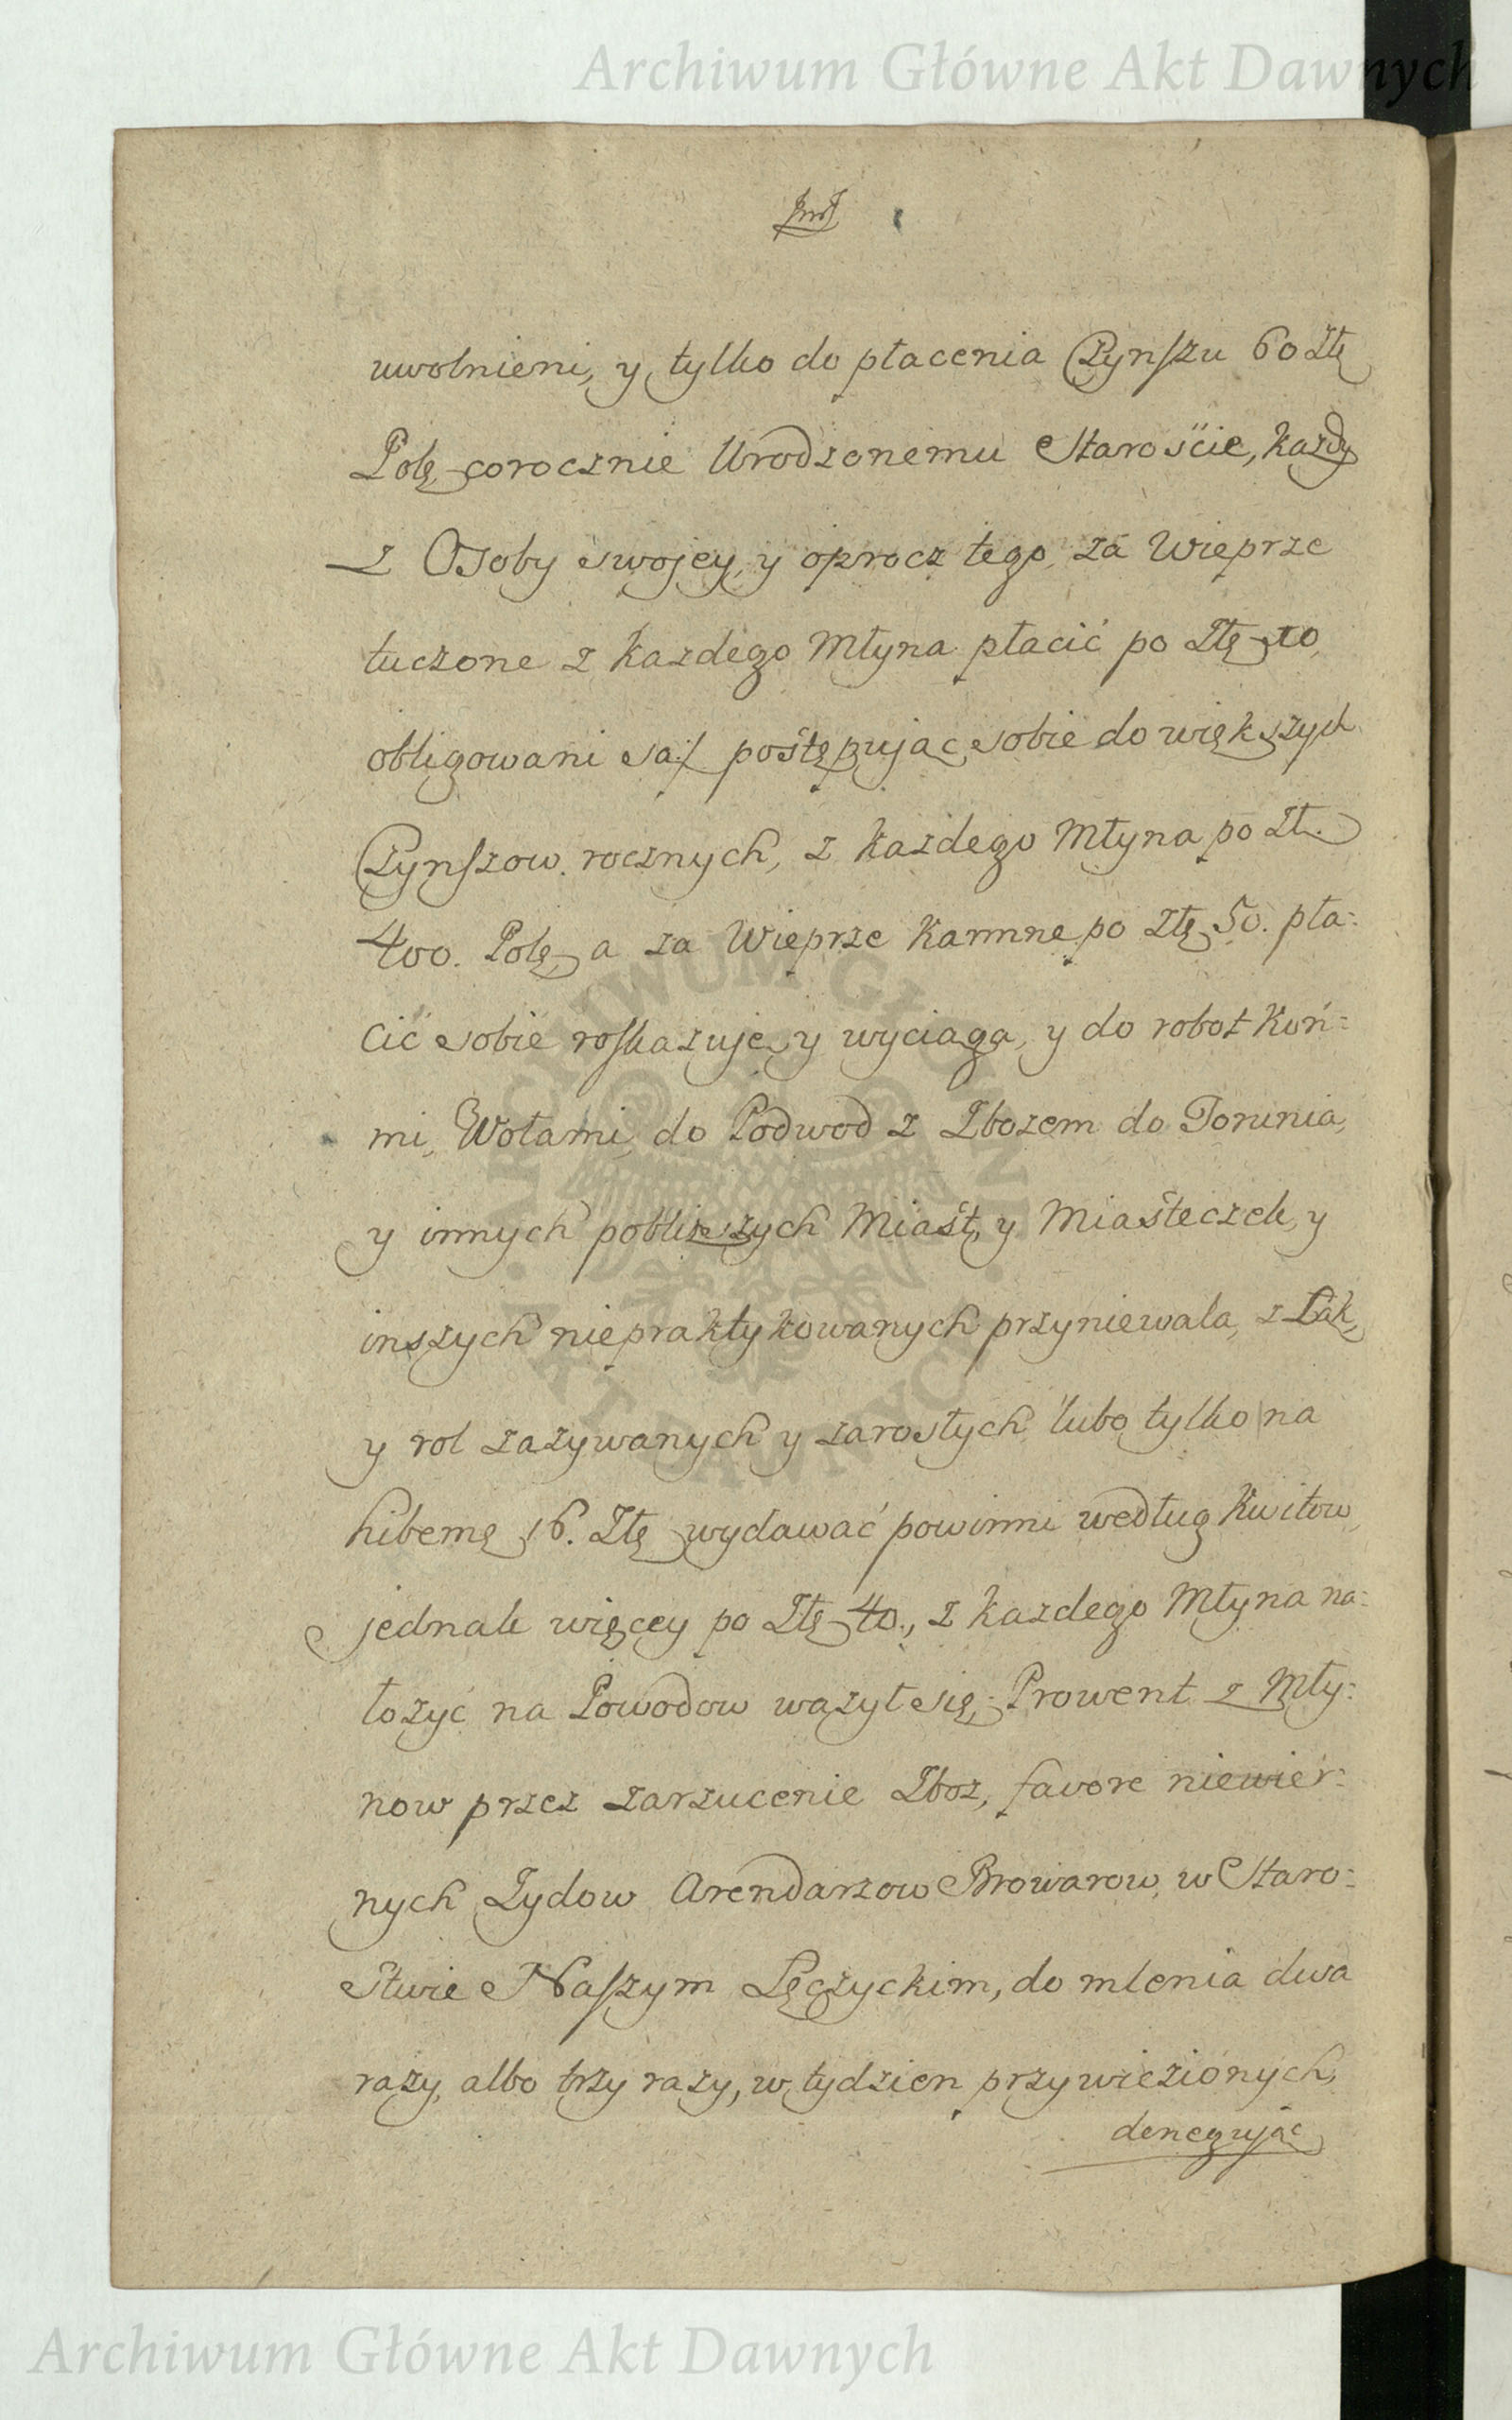 Archiwum Główne Akt Dawnych
uwolnieni, y tylko do płacenia Czynszu 60 Złł
Polł corocznie Urodzonemu Starościе, każdy
z Osoby swojey, y oprocz tego, za Wieprze
tuczone z każdego Młyna płacić po Złł 10,
obligowani są:/ postępując sobie do większych
Czynszow rocznych, z każdego Młyna po Zł.
400. Polł, a za Wieprze Karmne po Złł 50. pła:
cić sobie roskazuje, y wyciąga, y do robot Koń:
mi, Wołami, do Podwod z Zbożem do Torunia,
y innych pobliższych Miast, y Miasteczek, y
inszych niepraktykowanych przyniewala, z Łąk,
y rol zażywanych y zarosłych lubo tylko na
hibernę 16. Złł wydawać powinni według Kwitow,
jednak więcey po Złł 40., z każdego Młyna na:
łożyć na Powodow ważył się; Prowent z Mły:
now przez zarzucenie Zboż, favore niewier:
nych Żydow Arendarzow Browarow, w Staro:
stwie Naszym Łęczyckim, do mlenia dwa
razy, albo trzy razy, w tydzien przywiezionych,
denegując
ARCHIWUM GŁÓWNE AKT DAWNYCH
Archiwum Główne Akt Dawnych